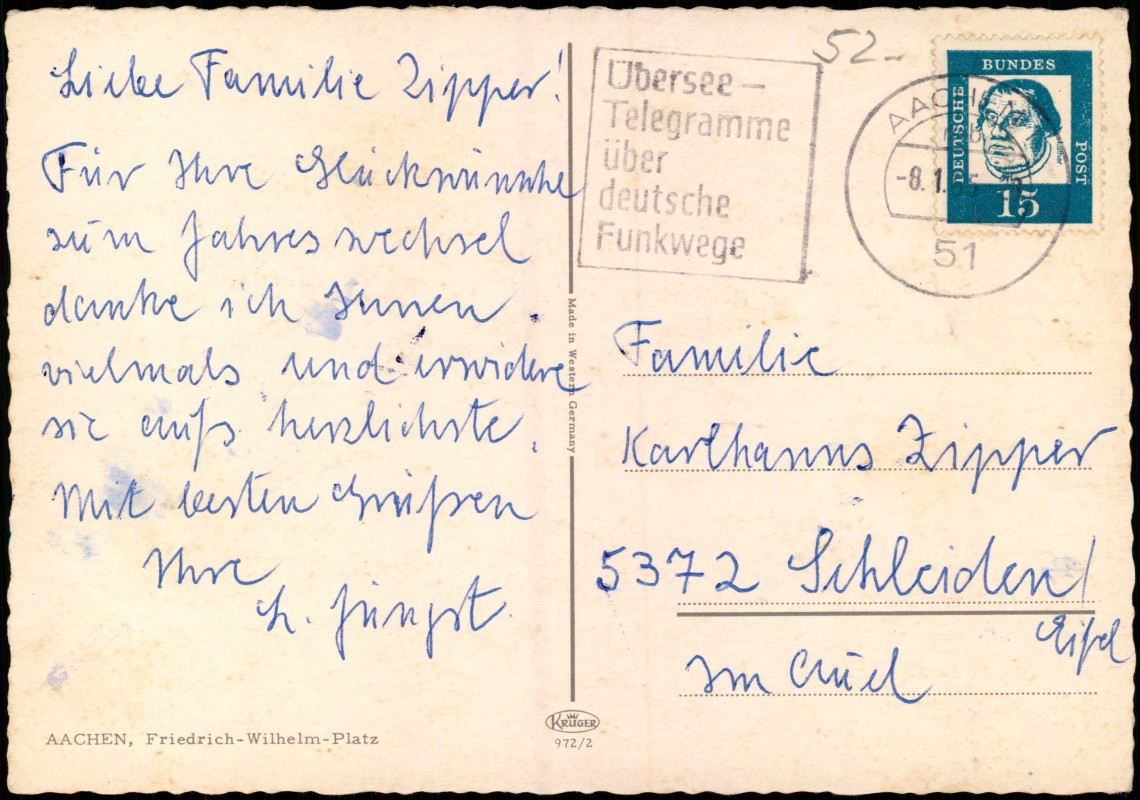 Liebe Familie Zipper!
Für Ihre Glückwünsche
zum Jahreswechsel
danke ich Ihnen
vielmals und erwidere
sie aufs herzlichste.
Mit besten Grüßen
Ihre
L. Jüngst.
AACHEN, Friedrich-Wilhelm-Platz
Made in Western Germany
KRÜGER
972/2
52-
Übersee-
Telegramme
über
deutsche
Funkwege
AACHEN
-8.1.
51
DEUTSCHE
BUNDES
POST
15
Familie
Karlhanns Zipper
5372 Schleiden/
Eifel
Im Auel